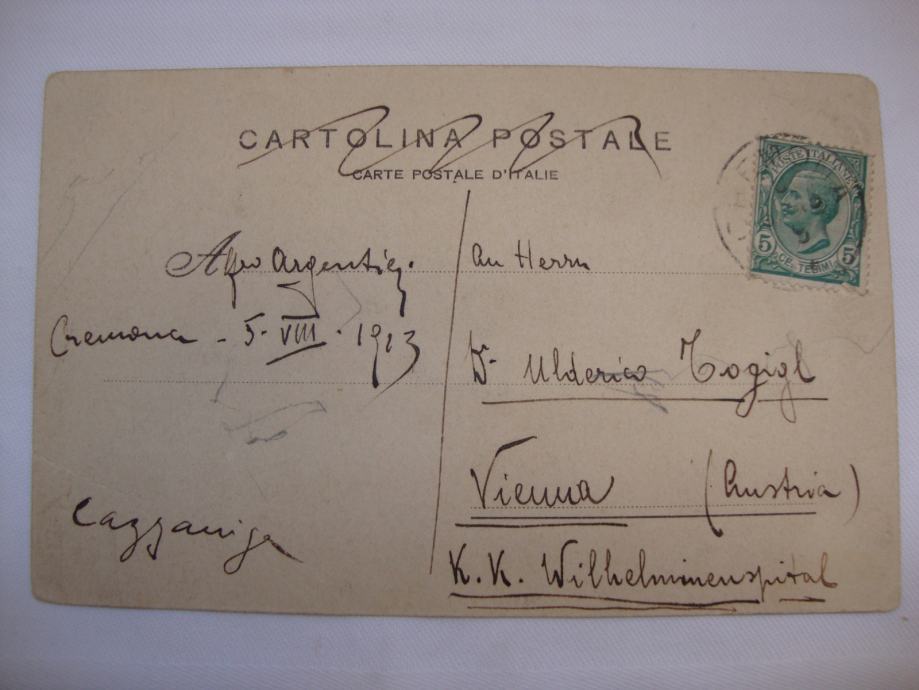 CARTOLINA POSTALE
CARTE POSTALE D'ITALIE
POSTE ITALIANE
5 CENTESIMI 5
Cremona - 5 - VIII - 1913
Cazzaniga
An Herrn
Dr Ulderico
Vienna (Austria)
K. K. Wilhelminenspital